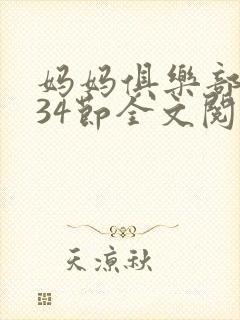 妈妈俱樂部
34節全文閱
天涼秋